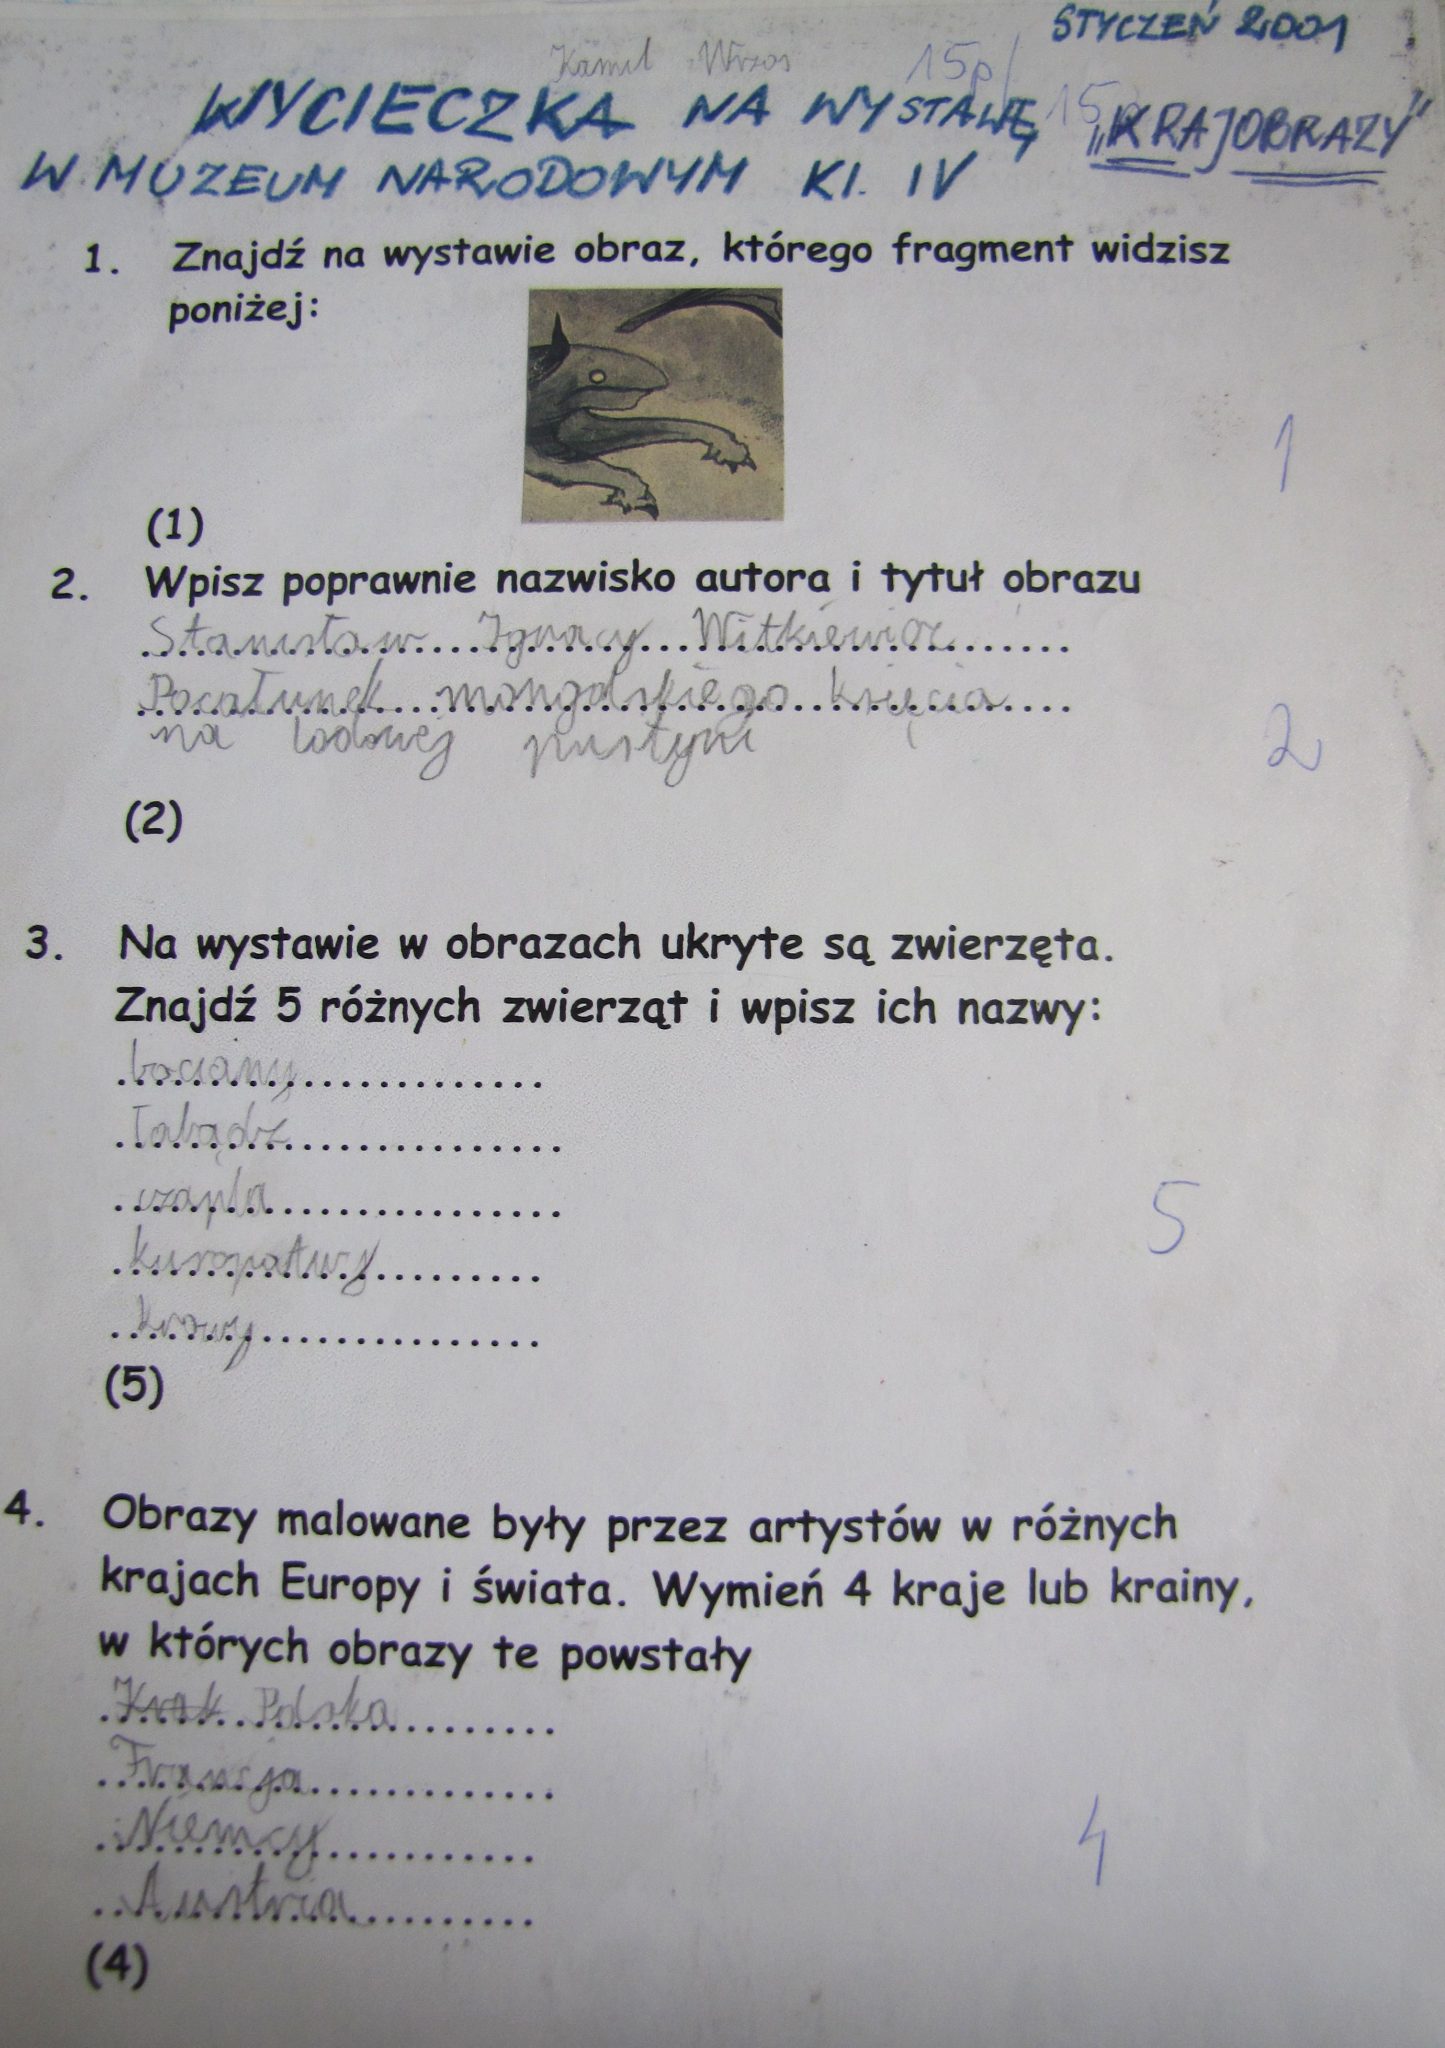 STYCZEŃ 2001
Kamil Wrzos 15p/15p
WYCIECZKA NA WYSTAWĘ „KRAJOBRAZY”
W MUZEUM NARODOWYM Kl. IV
1. Znajdź na wystawie obraz, którego fragment widzisz
poniżej:
1
(1)
2. Wpisz poprawnie nazwisko autora i tytuł obrazu
Stanisław Ignacy Witkiewicz
Pocałunek mongolskiego księcia
na lodowej pustyni
2
(2)
3. Na wystawie w obrazach ukryte są zwierzęta.
Znajdź 5 różnych zwierząt i wpisz ich nazwy:
bociany
łabądź
czapla
5
kuropatwy
krowy
(5)
4. Obrazy malowane były przez artystów w różnych
krajach Europy i świata. Wymień 4 kraje lub krainy,
w których obrazy te powstały
Krak Polska
Francja
Niemcy
4
Austria
(4)